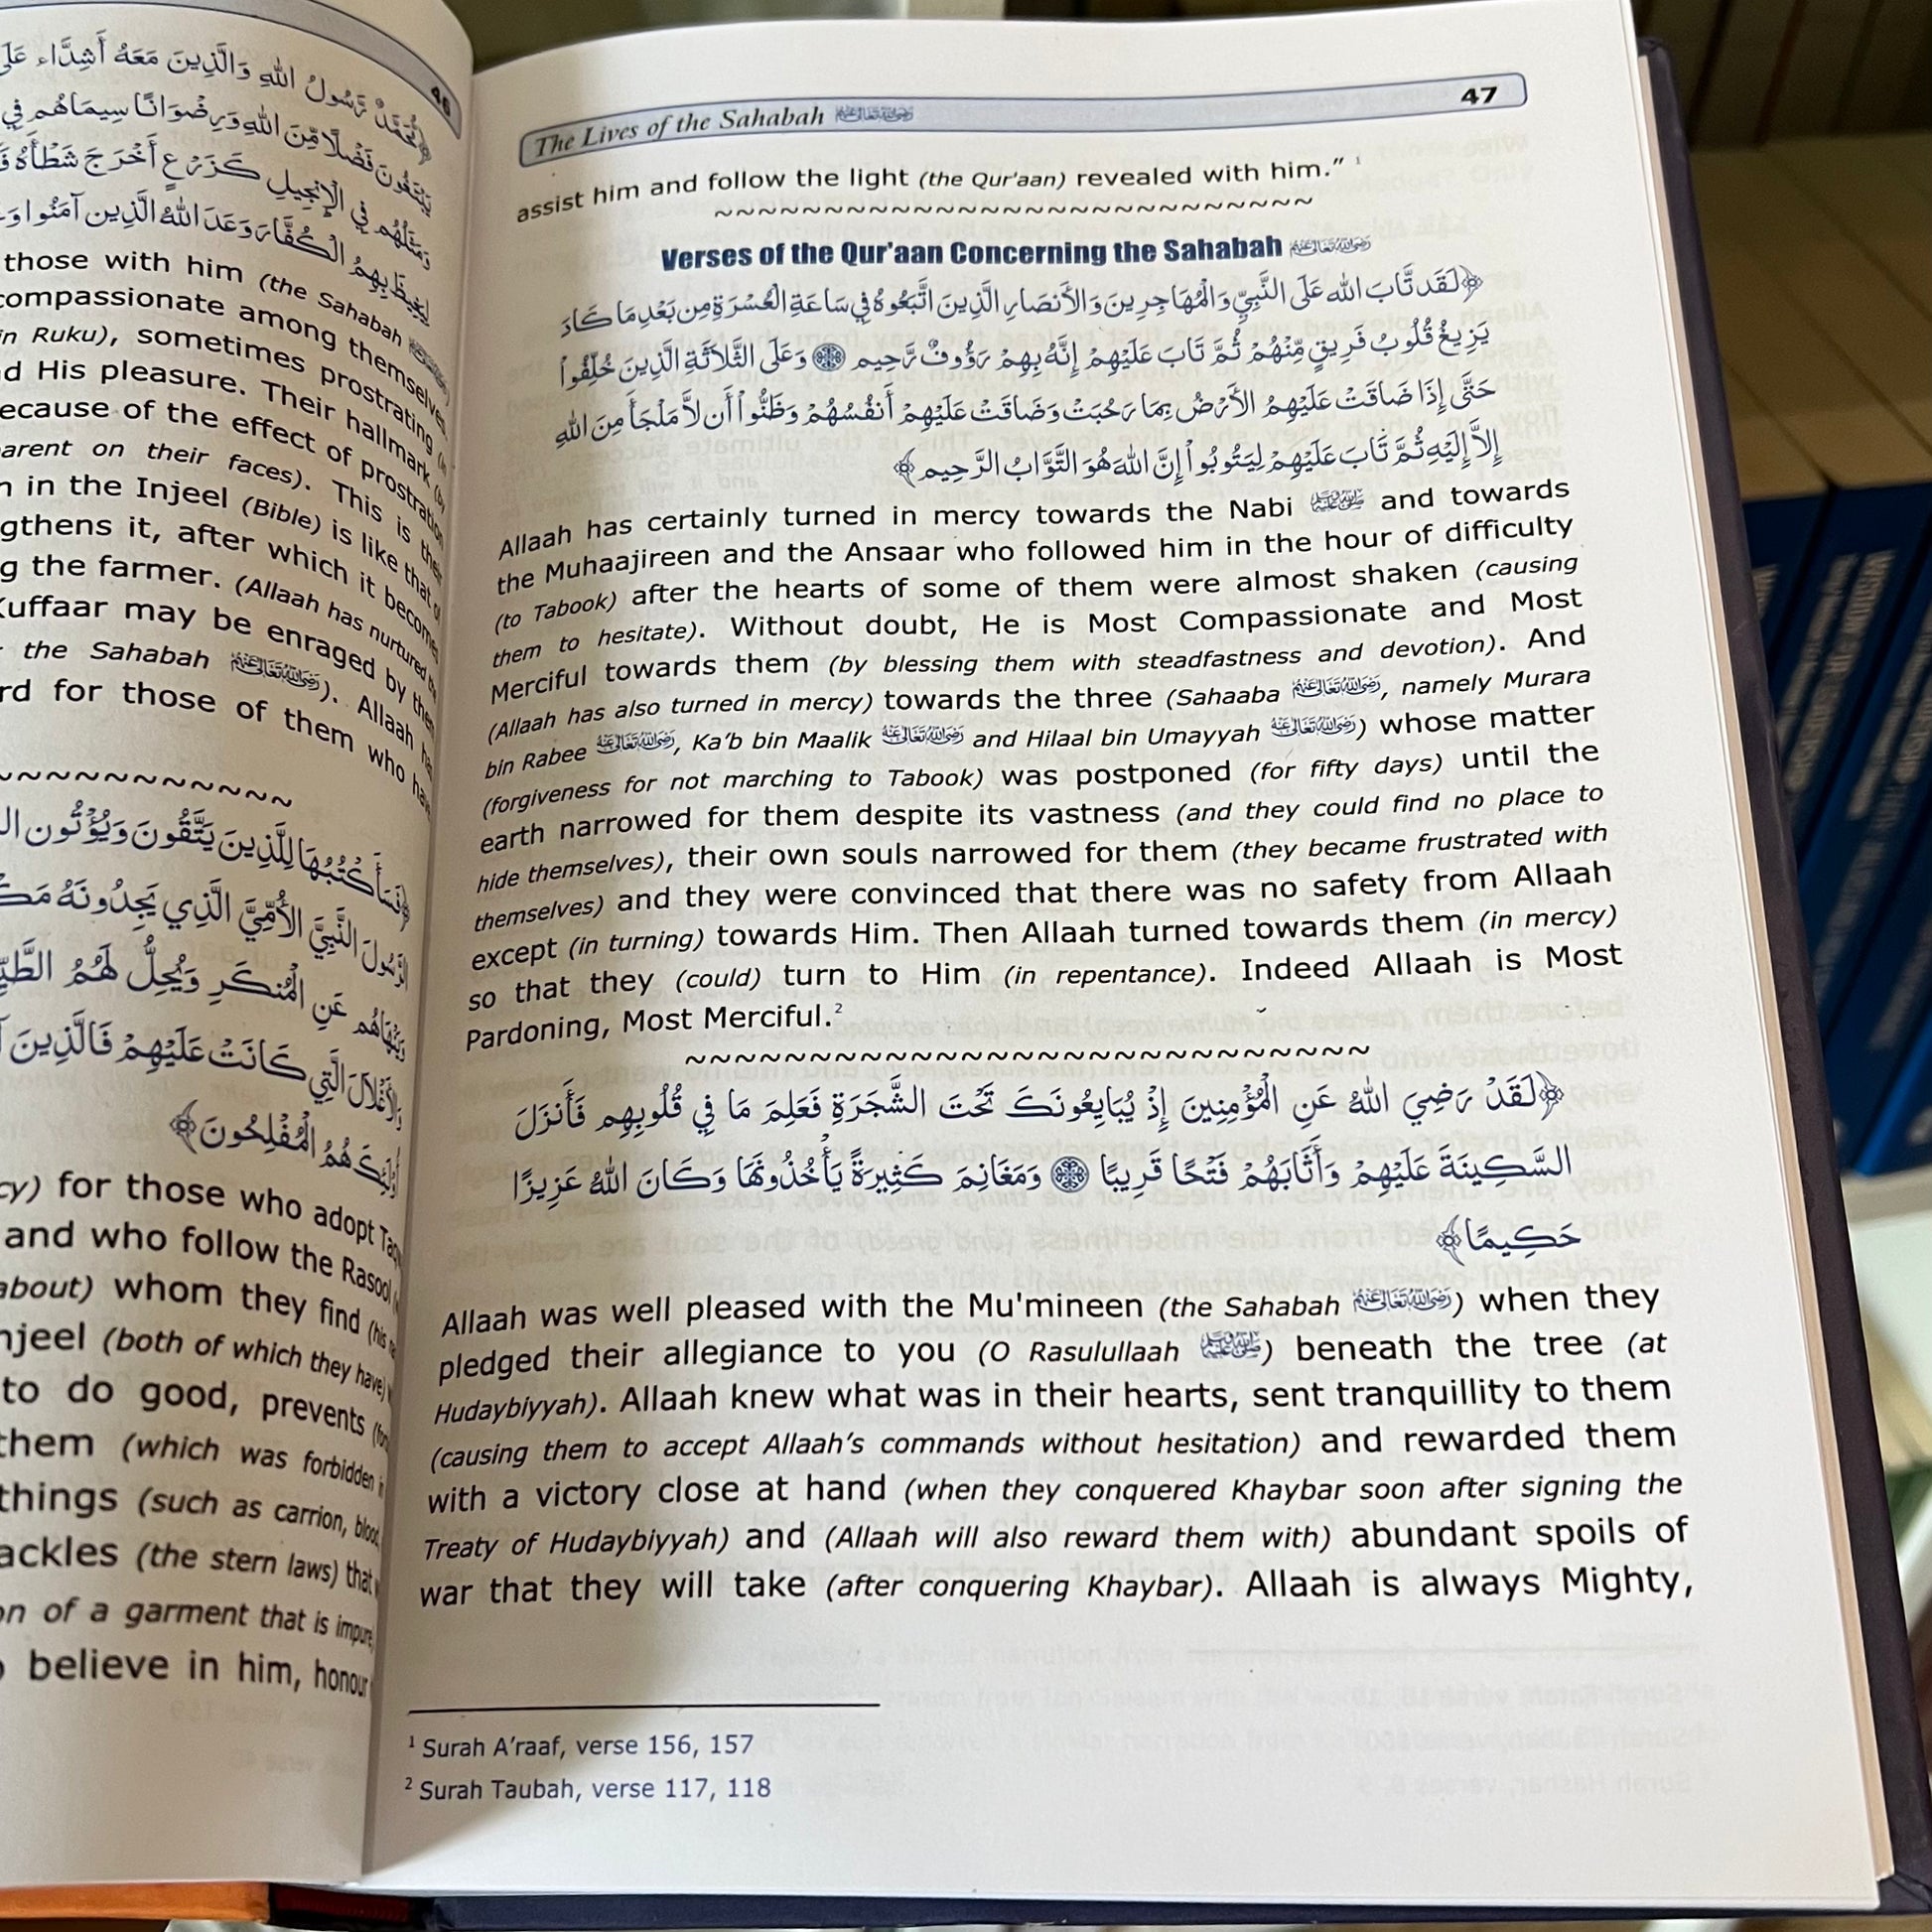 46
﴿مُّحَمَّدٌ رَّسُولُ اللهِ وَالَّذِينَ مَعَهُ أَشِدَّاء
يَبْتَغُونَ فَضْلًا مِّنَ اللهِ وَرِضْوَانًا سِيمَاهُم فِي
وَمَثَلُهُم فِي الْإِنجِيلِ كَزَرْعٍ أَخْرَجَ شَطْأَهُ
لِيَغِيظَ بِهِمُ الْكُفَّارَ وَعَدَ اللهُ الَّذِينَ آمَنُوا
those with him (the Sahabah
compassionate among themselves
in Ruku), sometimes prostrating
His pleasure. Their hallmark
because of the effect of prostration
on their faces). This is their
in the Injeel (Bible) is like that of
it, after which it becomes
the farmer. (Allaah has nurtured
Kuffaar may be enraged by
the Sahabah رضى الله تعالى عنهم). Allaah has
for those of them who have
~~~~~~~~~~~~
﴿فَسَأَكْتُبُهَا لِلَّذِينَ يَتَّقُونَ وَيُؤْتُونَ
الرَّسُولَ النَّبِيَّ الأُمِّيَّ الَّذِي يَجِدُونَهُ
وَيَنْهَاهُم عَنِ الْمُنكَرِ وَيُحِلُّ لَهُمُ
وَالأَغْلاَلَ الَّتِي كَانَتْ عَلَيْهِمْ فَالَّذِينَ
أُوْلَئِكَ هُمُ الْمُفْلِحُونَ﴾
for those who adopt
and who follow the Rasool
about) whom they find
(both of which they have)
to do good, prevents
them (which was forbidden
things (such as carrion, blood,
(the stern laws) that
of a garment that is
believe in him, honour
The Lives of the Sahabah رضى الله تعالى عنهم 47
assist him and follow the light (the Qur'aan) revealed with him." 1
~~~~~~~~~~~~~~~~~~~~~~~~~~~~
Verses of the Qur'aan Concerning the Sahabah رضى الله تعالى عنهم
﴿لَقَد تَّابَ الله عَلَى النَّبِيِّ وَالْمُهَاجِرِينَ وَالأَنصَارِ الَّذِينَ اتَّبَعُوهُ فِي سَاعَةِ الْعُسْرَةِ مِن بَعْدِ مَا كَادَ
يَزِيغُ قُلُوبُ فَرِيقٍ مِّنْهُمْ ثُمَّ تَابَ عَلَيْهِمْ إِنَّهُ بِهِمْ رَؤُوفٌ رَّحِيم وَعَلَى الثَّلاَثَةِ الَّذِينَ خُلِّفُواْ
حَتَّى إِذَا ضَاقَتْ عَلَيْهِمُ الأَرْضُ بِمَا رَحُبَتْ وَضَاقَتْ عَلَيْهِمْ أَنفُسُهُمْ وَظَنُّواْ أَن لاَّ مَلْجَأَ مِنَ اللهِ
إِلاَّ إِلَيْهِ ثُمَّ تَابَ عَلَيْهِمْ لِيَتُوبُواْ إِنَّ اللهَ هُوَ التَّوَّابُ الرَّحِيم﴾
Allaah has certainly turned in mercy towards the Nabi صلى الله عليه وسلم and towards
the Muhaajireen and the Ansaar who followed him in the hour of difficulty
(to Tabook) after the hearts of some of them were almost shaken (causing
them to hesitate). Without doubt, He is Most Compassionate and Most
Merciful towards them (by blessing them with steadfastness and devotion). And
(Allaah has also turned in mercy) towards the three (Sahaaba رضى الله تعالى عنهم, namely Murara
bin Rabee رضى الله تعالى عنه, Ka'b bin Maalik رضى الله تعالى عنه and Hilaal bin Umayyah رضى الله تعالى عنه) whose matter
(forgiveness for not marching to Tabook) was postponed (for fifty days) until the
earth narrowed for them despite its vastness (and they could find no place to
hide themselves), their own souls narrowed for them (they became frustrated with
themselves) and they were convinced that there was no safety from Allaah
except (in turning) towards Him. Then Allaah turned towards them (in mercy)
so that they (could) turn to Him (in repentance). Indeed Allaah is Most
Pardoning, Most Merciful.2
~~~~~~~~~~~~~~~~~~~~~~~~~~~~
﴿لَقَدْ رَضِيَ اللهُ عَنِ الْمُؤْمِنِينَ إِذْ يُبَايِعُونَكَ تَحْتَ الشَّجَرَةِ فَعَلِمَ مَا فِي قُلُوبِهِم فَأَنزَلَ
السَّكِينَةَ عَلَيْهِمْ وَأَثَابَهُمْ فَتْحًا قَرِيبًا وَمَغَانِمَ كَثِيرَةً يَأْخُذُونَهَا وَكَانَ اللهُ عَزِيزًا
حَكِيمًا﴾
Allaah was well pleased with the Mu'mineen (the Sahabah رضى الله تعالى عنهم) when they
pledged their allegiance to you (O Rasulullaah صلى الله عليه وسلم) beneath the tree (at
Hudaybiyyah). Allaah knew what was in their hearts, sent tranquillity to them
(causing them to accept Allaah's commands without hesitation) and rewarded them
with a victory close at hand (when they conquered Khaybar soon after signing the
Treaty of Hudaybiyyah) and (Allaah will also reward them with) abundant spoils of
war that they will take (after conquering Khaybar). Allaah is always Mighty,
1 Surah A'raaf, verse 156, 157
2 Surah Taubah, verse 117, 118